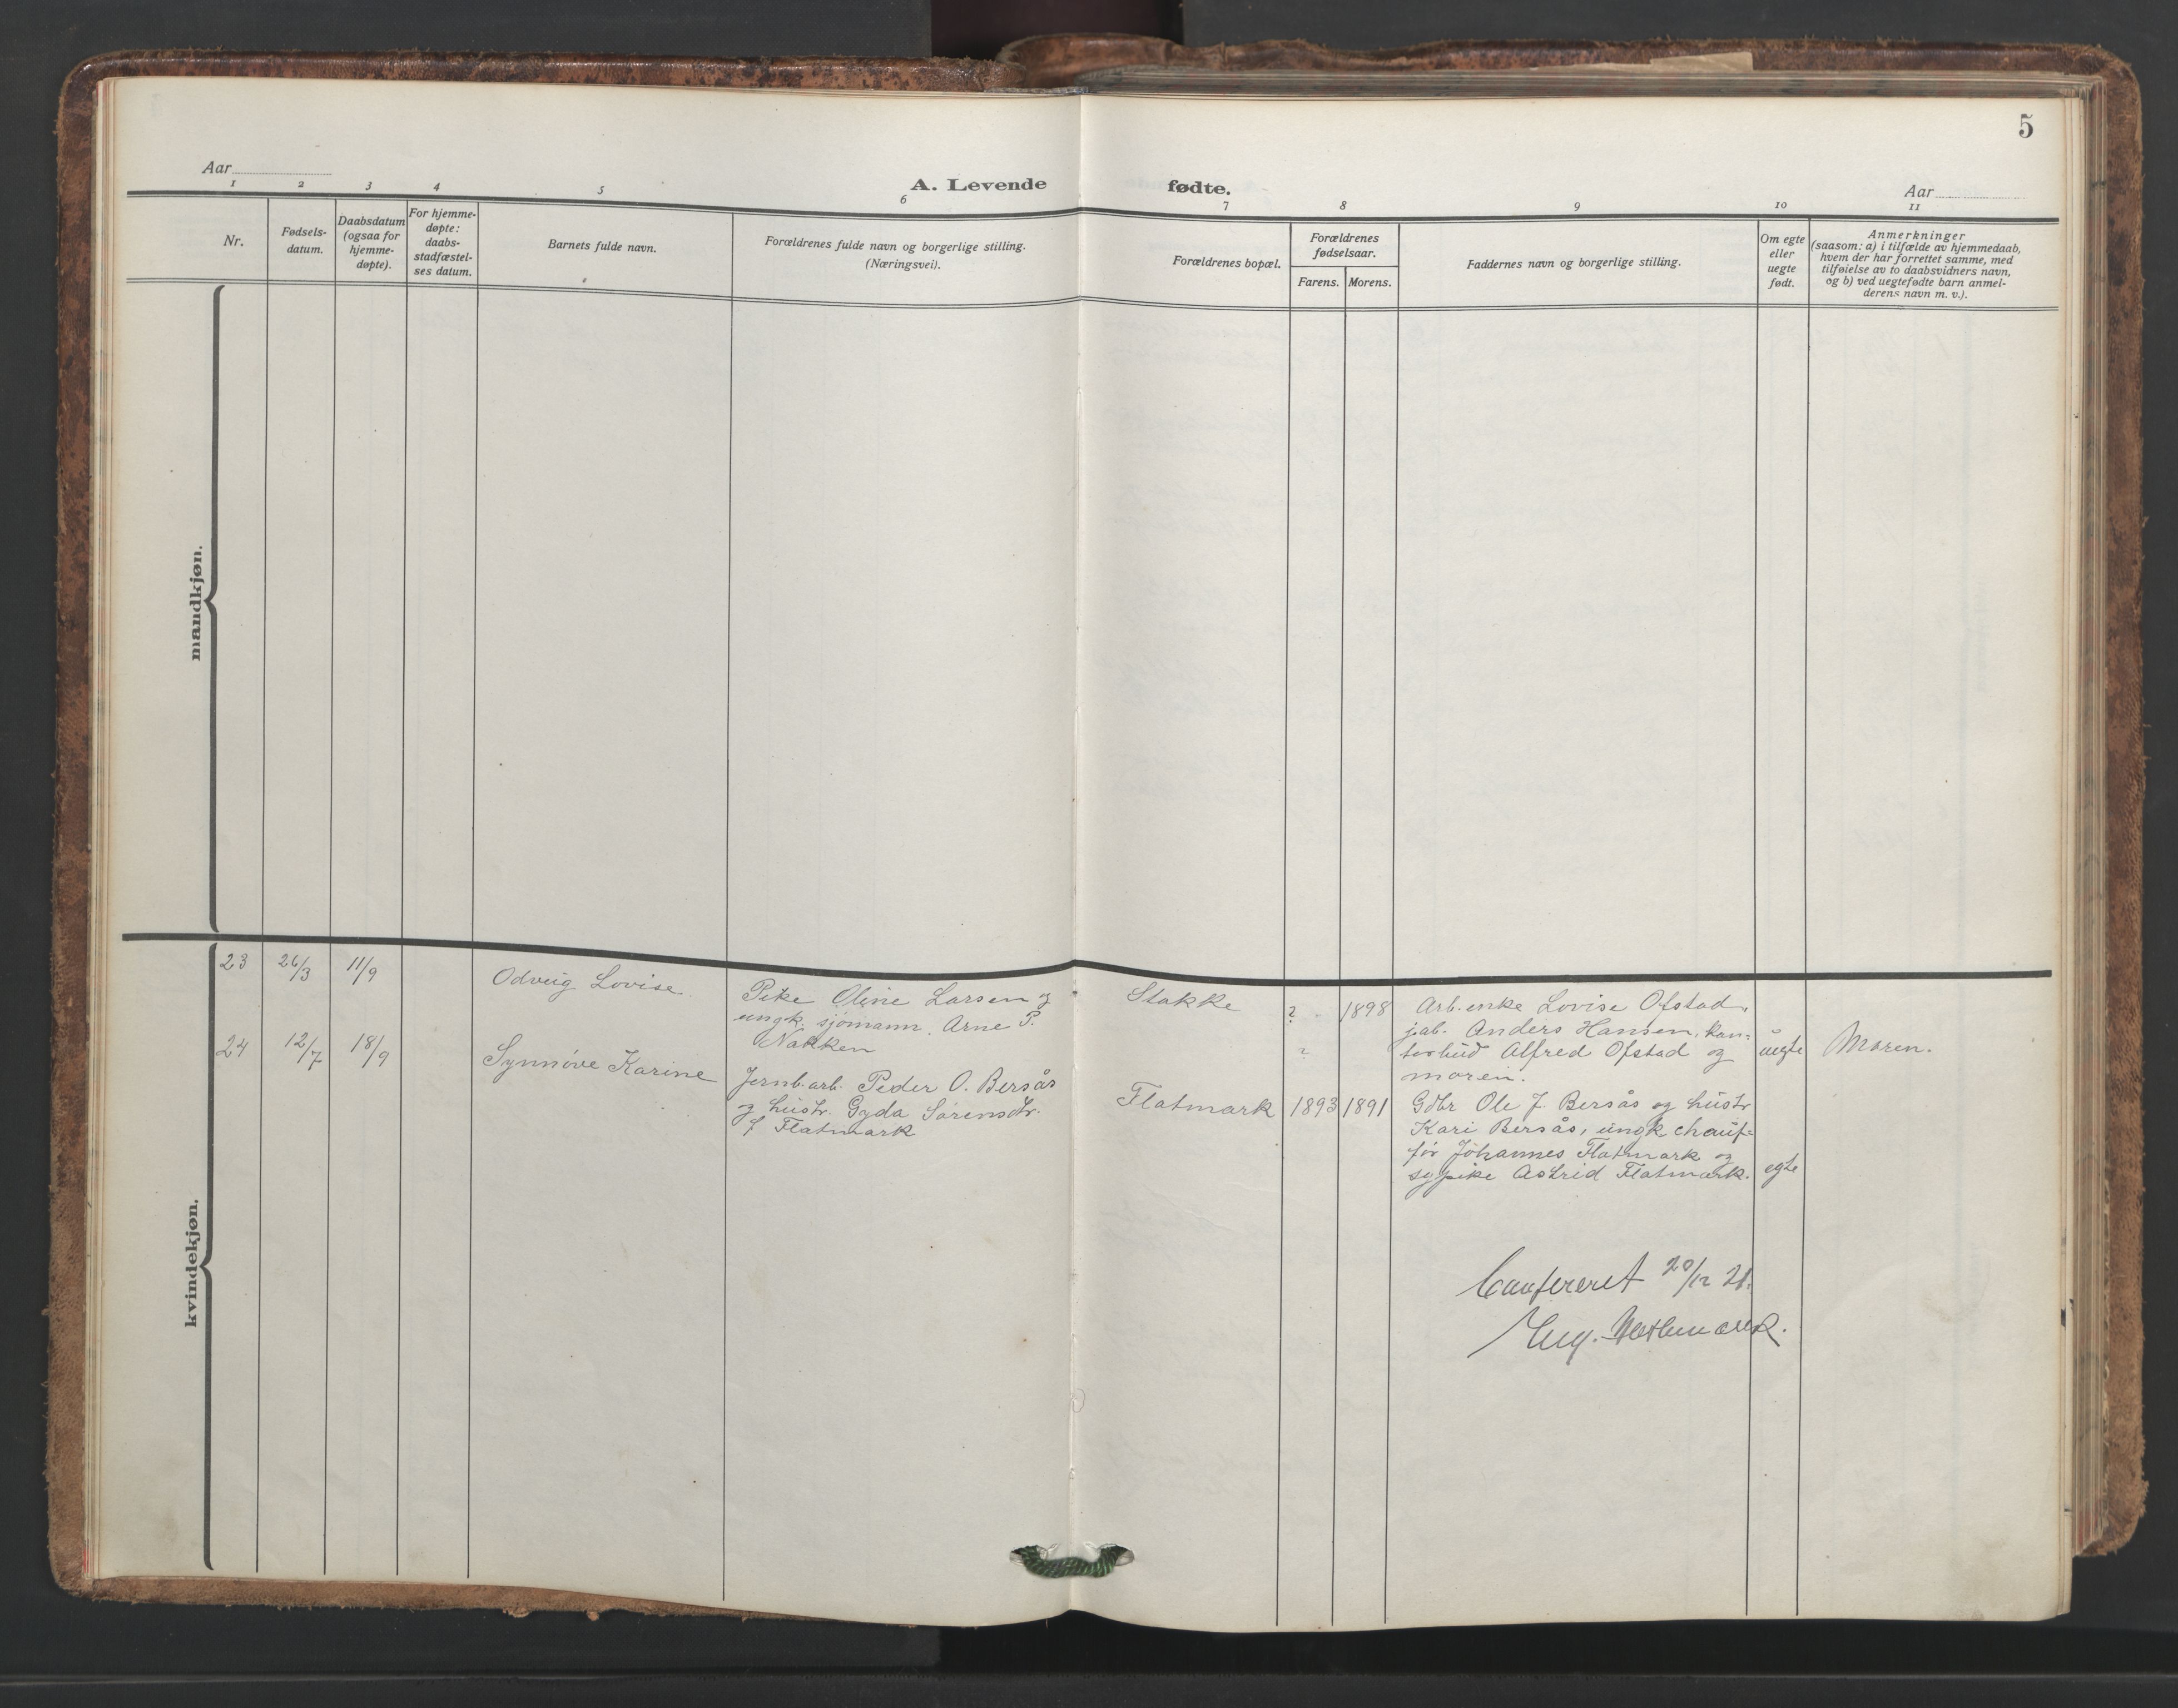 5
Aar
A. Levende fødte.
Aar
1 2 3 4 5 6 7 8 9 10 11
Nr.
Fødsels-
datum.
Daabsdatum
(ogsaa for
hjemme-
døpte).
For hjemme-
døpte:
daabs-
stadfæstel-
ses datum.
Barnets fulde navn.
Forældrenes fulde navn og borgerlige stilling.
(Næringsvei).
Forældrenes bopæl.
Forældrenes
fødselsaar.
Farens. Morens.
Faddernes navn og borgerlige stilling.
Om egte
eller
uegte
født.
Anmerkninger
(saasom: a) i tilfælde av hjemmedaab,
hvem der har forrettet samme, med
tilføielse av to daabsvidners navn,
og b) ved uegtefødte barn anmel-
derens navn m. v.).
mandkjøn.
kvindekjøn.
23 26/3 11/9
Odveig Lovise.
Pike Oline Larsen og
ungk. sjømann. Arne P.
Nakken
Stokke
? 1898
?
Arb. enke Lovise Ofstad,
jab. Anders Hansen, kon=
torbud Alfred Ofstad og
moren.
uegte
Moren.
24 12/7 18/9
Synnöve Karine
Jernb. arb. Peder O. Bersås
og hustr. Gyda Sörensdtr.
f Flatmark
Flatmark 1893 1891
Gdbr Ole J. Bersås og hustr
Kari Bersås, ungk chauf=
för Johannes Flatmark og
sypike Astrid Flatmark.
egte
Confereret 20/12 21.
Eug.